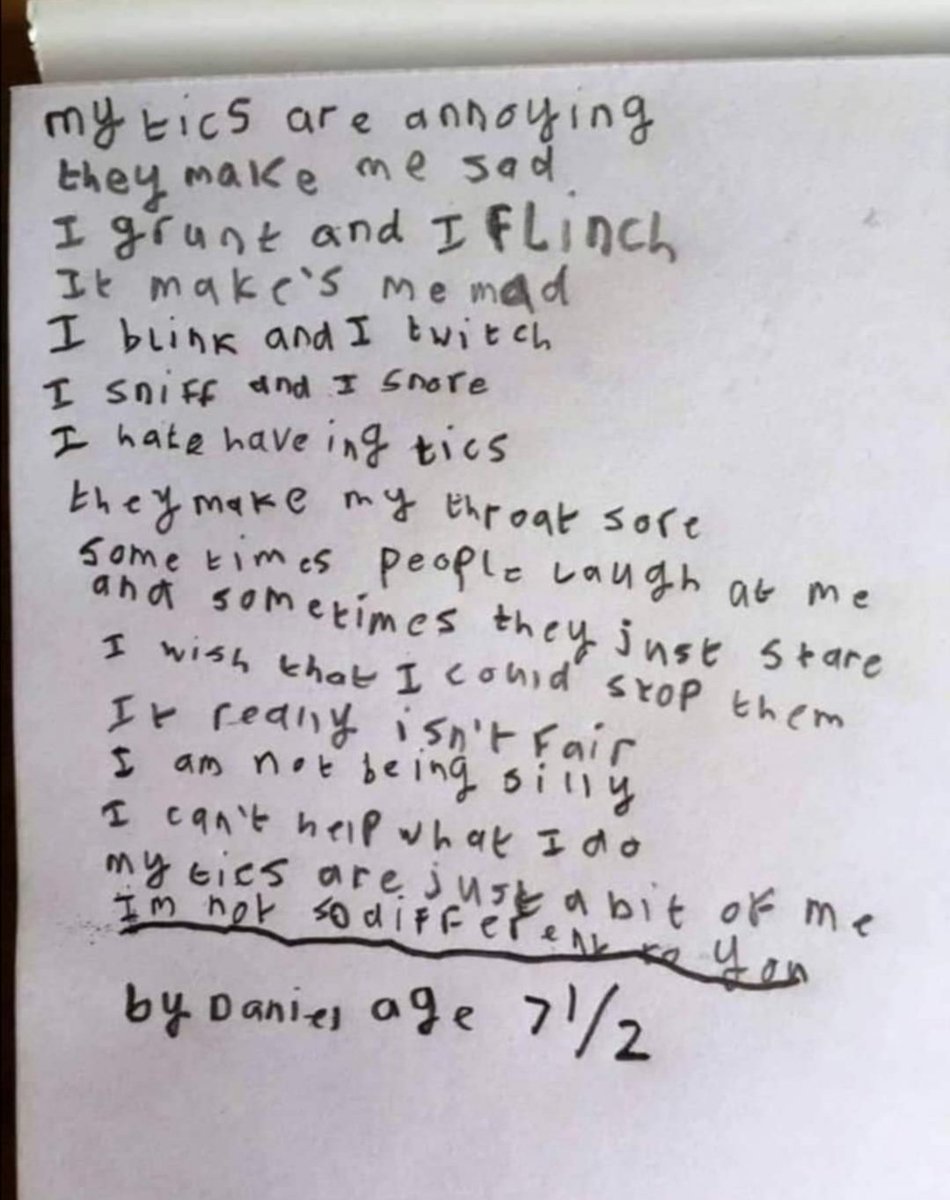 my tics are annoying
they make me sad
I grunt and I FLinch
It make's me mad
I blink and I twitch
I sniff and I snore
I hate have ing tics
they make my throat sore
some times people laugh at me
and sometimes they just stare
I wish that I could stop them
It really isn't fair
I am not being silly
I can't help what I do
my tics are just a bit of me
Im not so different to you
by Daniel age 7 1/2